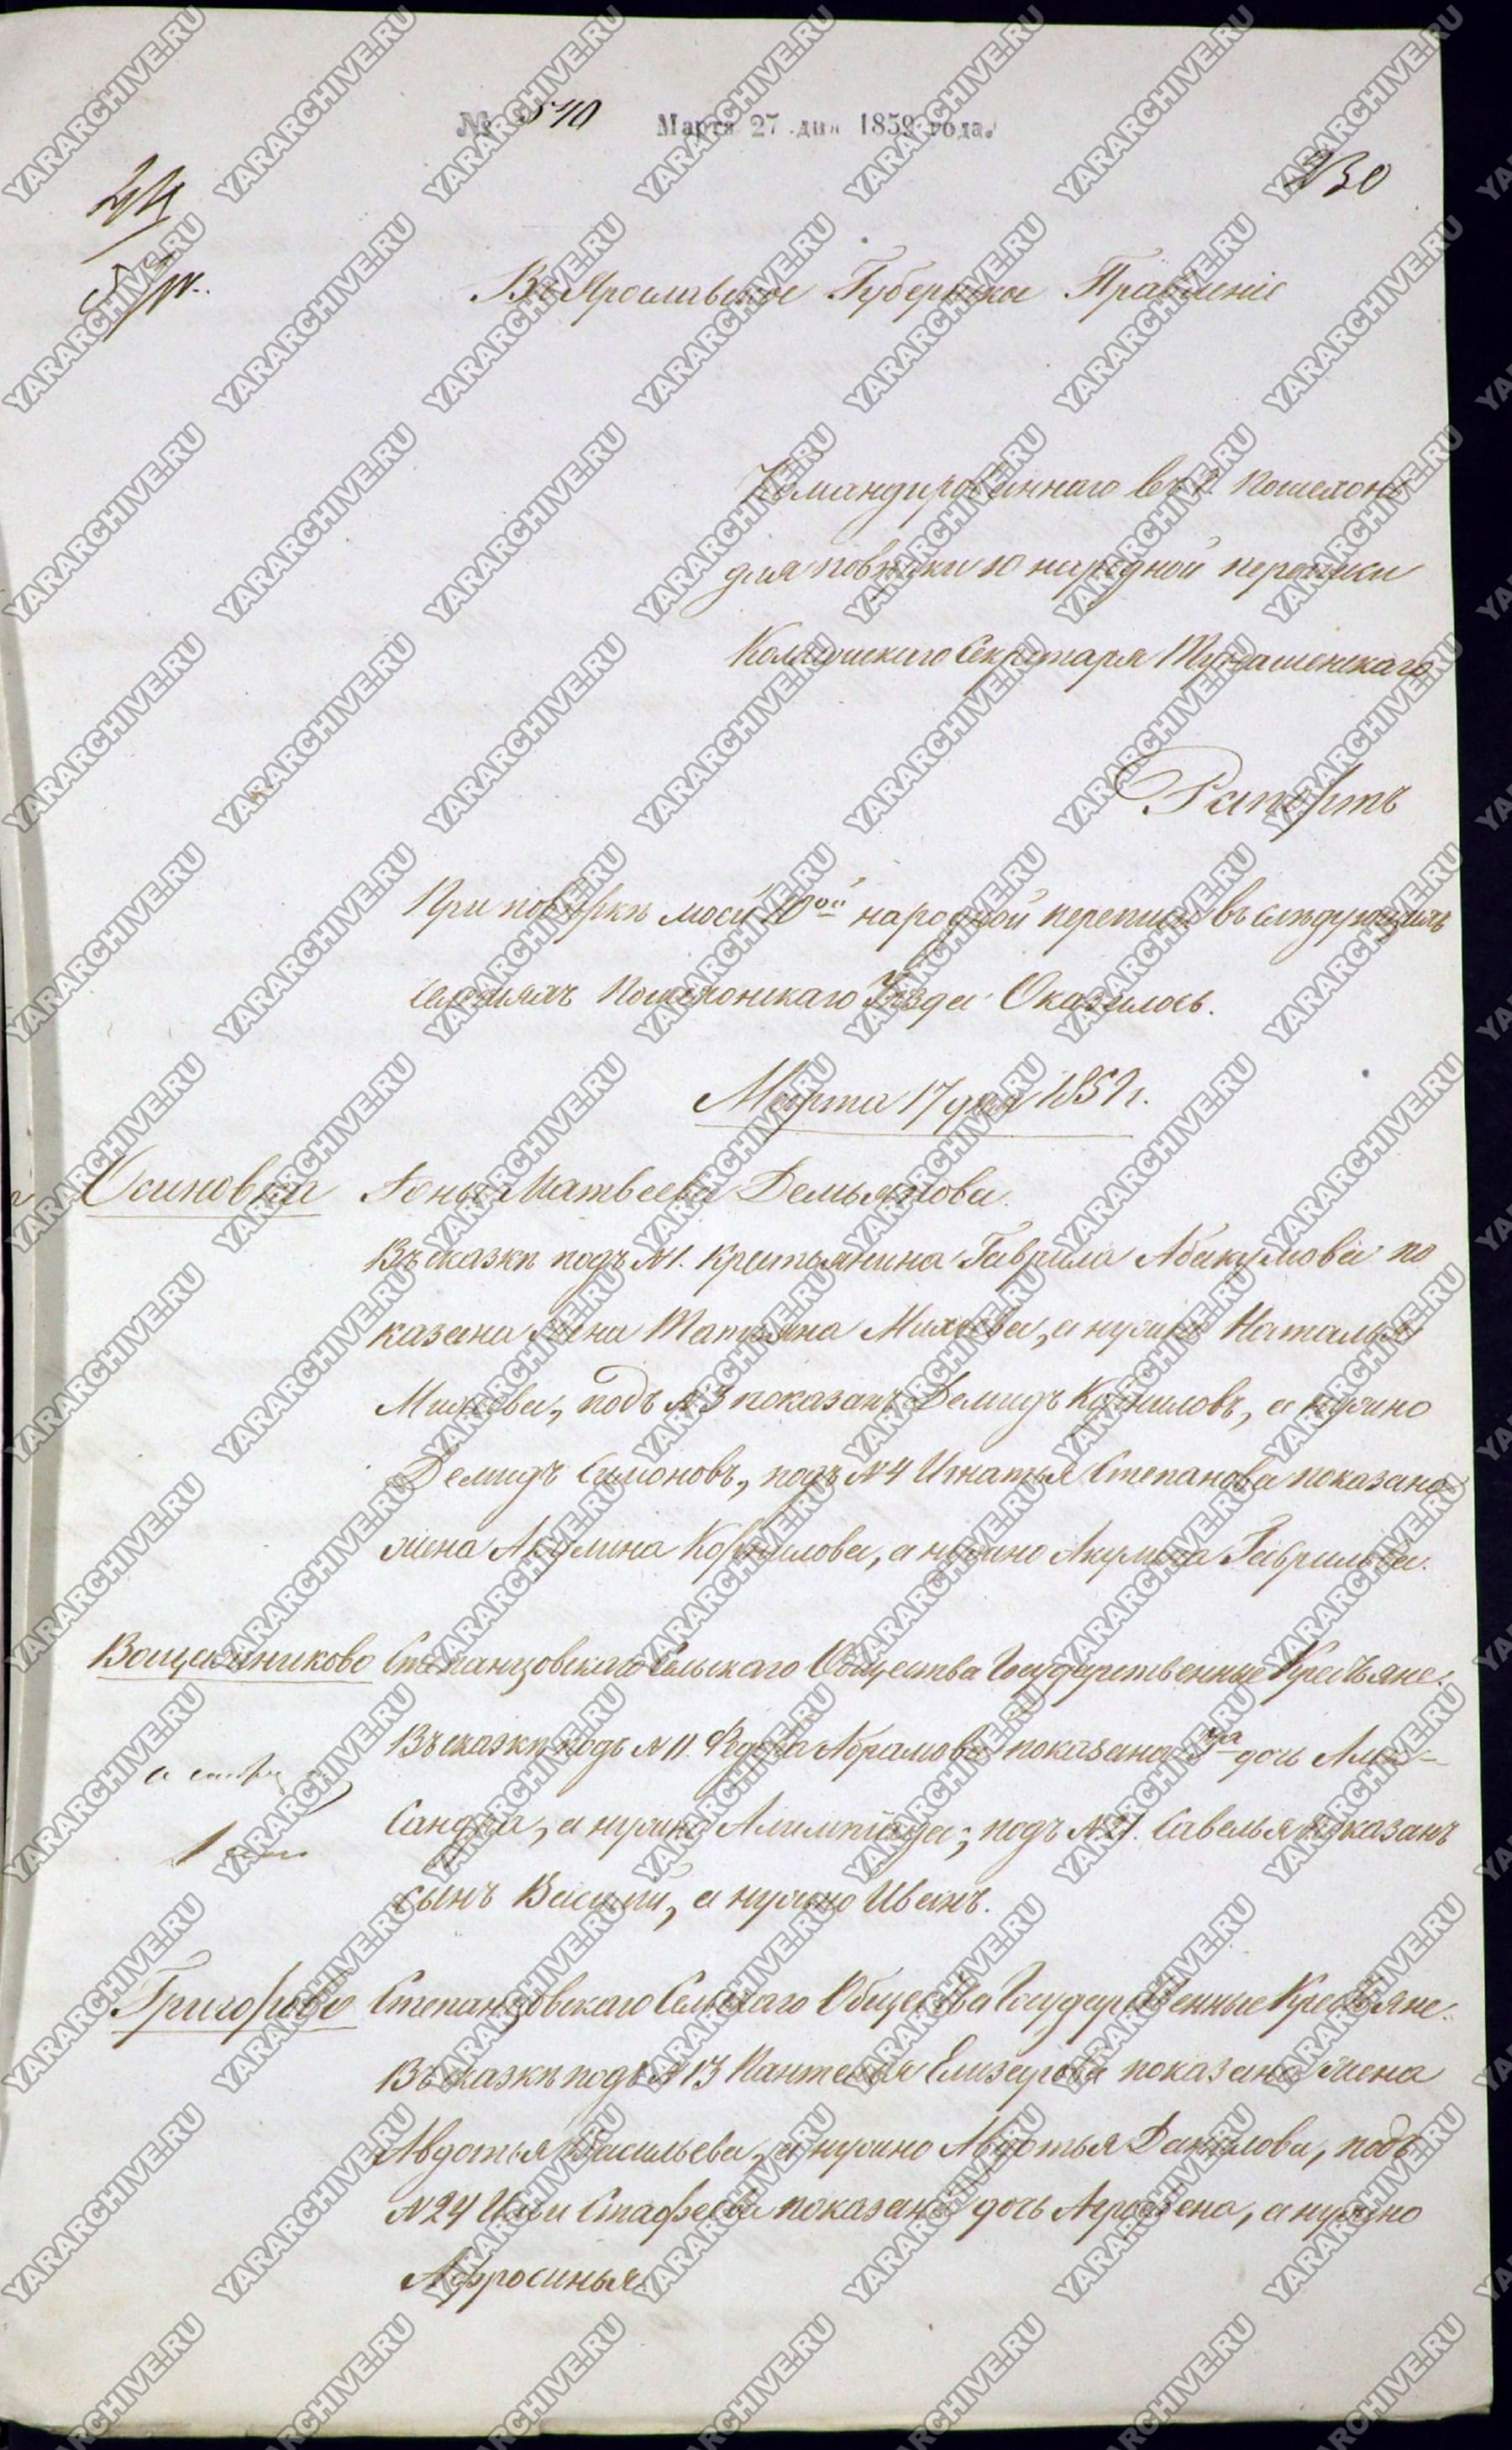 № 540 Марта 27 дня 1859 года.
230
Въ Ярославское Губернское Правленіе
Командированнаго въ г. Пошехонь
для повѣрки 10 народной переписи
Коллежскаго Секретаря
Рапортъ
При повѣркѣ моей 10ой народной переписи въ слѣдующихъ
селеніяхъ Пошехонскаго Уѣзда Оказалось.
Марта 17 дня 1859 г.
Осиновка Матвеева Демьянова.
Въ сказкѣ подъ №1. крестьянина Гаврила Абакумова по
казана жена Татьяна Михеева, а нужно Наталья
Михеева, подъ №3 показанъ Демидъ Корниловъ, а нужно
Демидъ Симоновъ, подъ №4 Игнатья Степанова показана
жена Акулина Корнилова, а нужно Акулина Гаврилова.
Вощажниково Степанцовскаго Сельскаго Общества Государственные Крестьяне.
Въ сказкѣ подъ №11. Федора Абрамова показана 3я дочь Алек-
сандра, а нужно Алимпіада; подъ №21. Савелья показанъ
сынъ Василій, а нужно Иванъ.
Григорово Степанцовскаго Сельскаго Общества Государственные Крестьяне.
Въ сказкѣ подъ №13 Пантелея Елизарова показана жена
Авдотья Васильева, а нужно Авдотья Данилова, подъ
№24 Ильи Стафеева показана дочь Аграфена, а нужно
Афросинья.
YARARCHIVE.RU